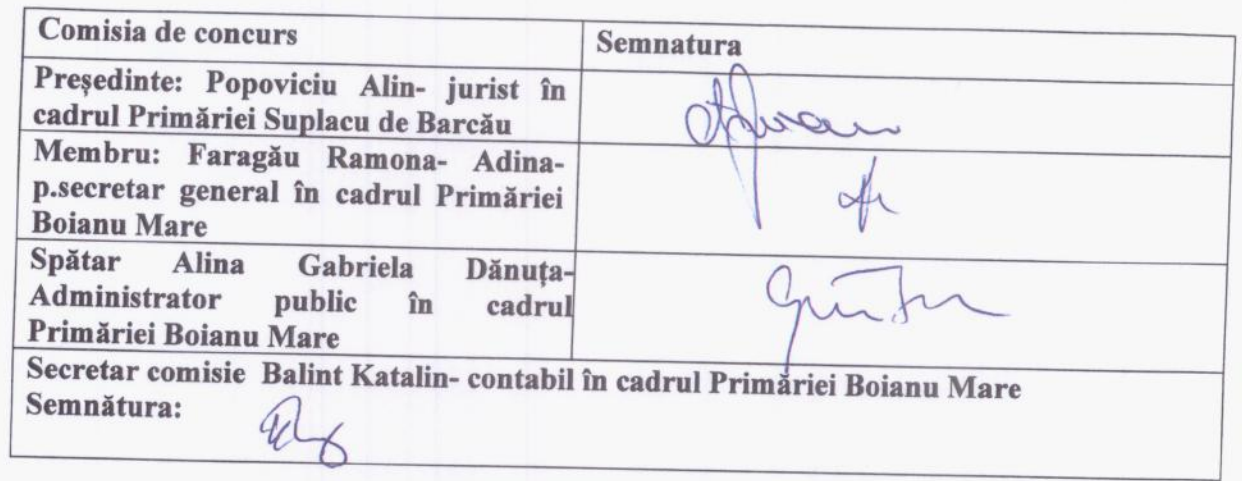 Comisia de concurs
Semnatura
Președinte: Popoviciu Alin- jurist în
cadrul Primăriei Suplacu de Barcău
Membru: Faragău Ramona- Adina-
p.secretar general în cadrul Primăriei
Boianu Mare
Spătar Alina Gabriela Dănuța-
Administrator public în cadrul
Primăriei Boianu Mare
Secretar comisie Balint Katalin- contabil în cadrul Primăriei Boianu Mare
Semnătura: